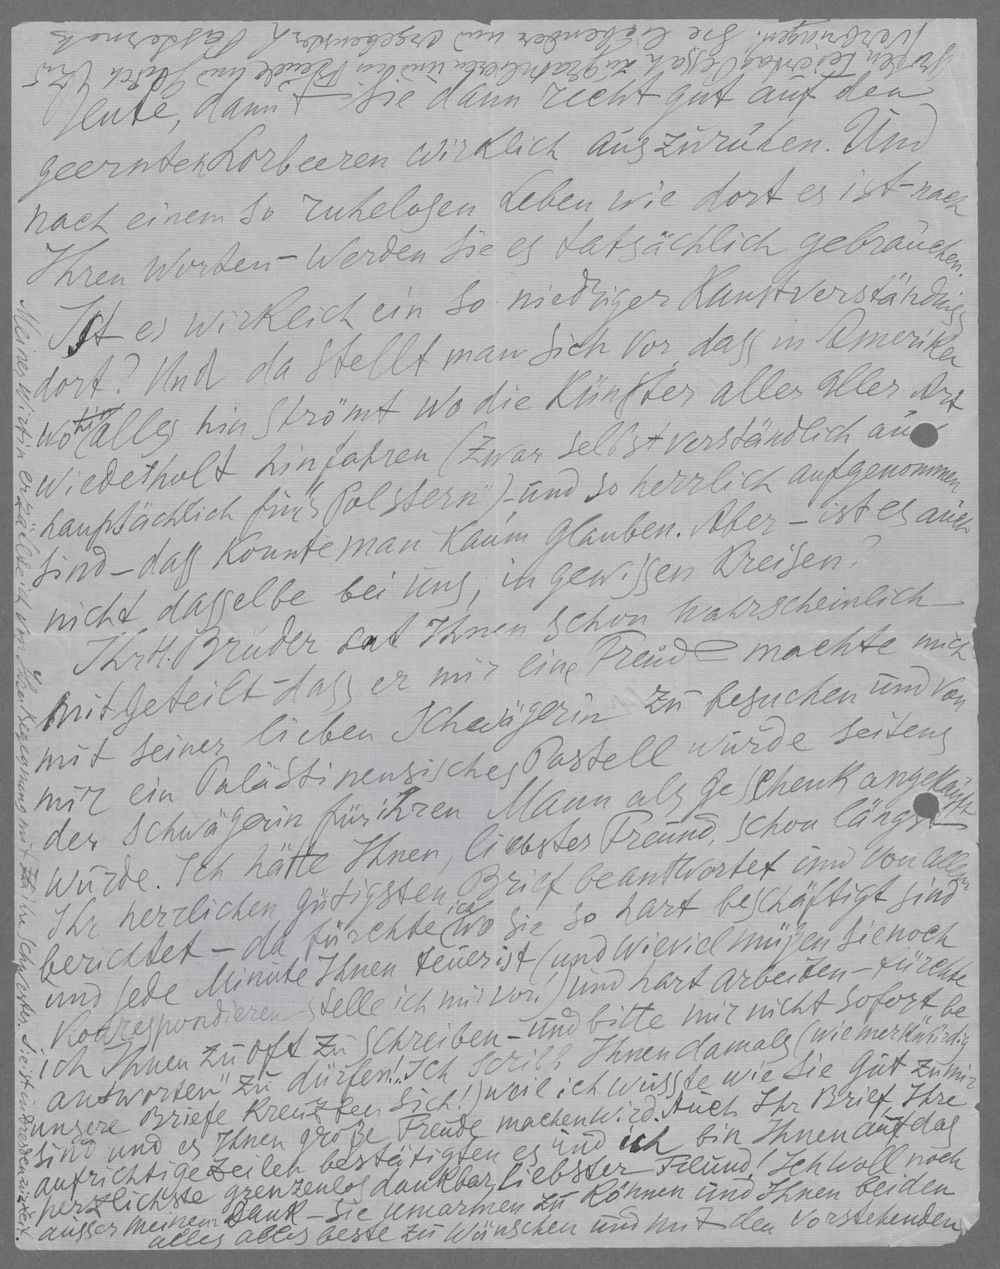 Heute, dann Sie dann recht gut auf den
geernten Lorbeeren wirklich auszurühen. Und
nach einem so ruhelosen Leben wie dort es ist – nach
Ihren Worten – werden Sie es tatsächlich gebraüchen.
Ist es wirklich ein so niedriger Kunstverständniss
dort? Und da stellt man sich vor, dass in Amerika
wohin alles hin strömt wo die Künstler aller aller Art
wiederholt hinfahren (zwar selbstverständlich auch
hauptsächlich für's "Polstern") – und so herrlich aufgenommen
sind – dass konnte man kaum glauben. Aber – ist es auch
nicht dasselbe bei uns, in gewissen Kreisen?
Ihr H. Brüder hat Ihnen schon wahrscheinlich
mitgeteilt – dass er mir eine Freude machte mich
mit seiner lieben Schwägerin zu besuchen und von
mir ein Palästinensisches Pastell würde seitens
der Schwägerin für ihren Mann als Geschenk angekauft
würde. Ich hätte Ihnen, liebster Freund, schon längst
Ihr herzlichen gütigsten Brief beantwortet und von allem
berichtet – da fürchte ich wo Sie so hart beschäftigt sind
und jede Minute Ihnen teuer ist (und wieviel müssen Sie noch
Korrespondieren – stelle ich mir vor!) und hart arbeiten – fürchte
ich Ihnen zu oft zu schreiben – und bitte mir nicht sofort be
antworten" zu dürfen! Ich Ihnen damals (wie merkwürdig
unsere Briefe kreuzten sich!) weil ich wusste wie Sie gut zu mir
sind und es Ihnen große Freude machen wird. Auch Ihr Brief Ihre
aufrichtige Zeilen bestätigten es und ich bin Ihnen auf das
herzlichste grenzenlos dankbar, liebster Freund! Ich will noch
ausser meinem Dank – Sie umarmen zu können und Ihnen beiden
alles alles beste zu wünschen und mit den vorstehenden
großen Feiertag Pessah zu gratulieren und in Freude und Glück
verbringen. Sie liebender und ergebenster L. Pasternak
Meiner Wirtin erzählte ich von Ihrer Begegnung mit Schwester. Sie ist